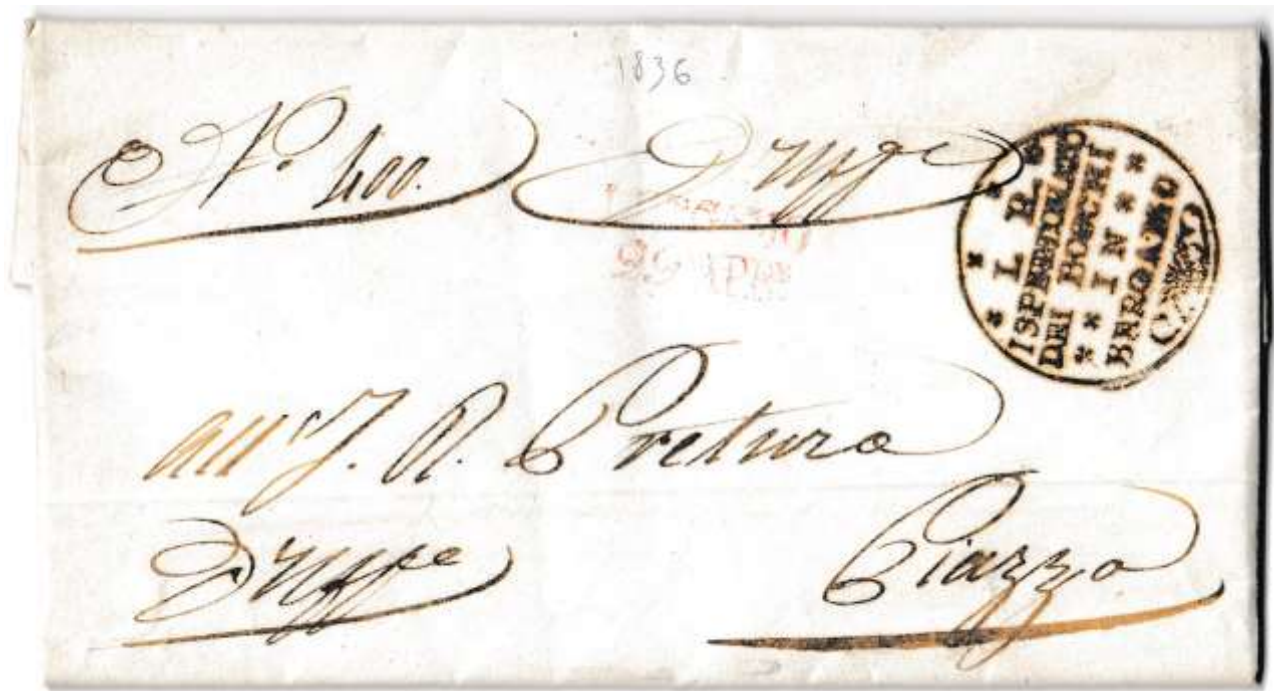 1836
N.º 400. D'Uffº
* I. R. *
ISPETTORATO
DEI BOSCHI
* * IN * *
BERGAMO
29 APR
all' I. R. Pretura
D'Uffº Piazza